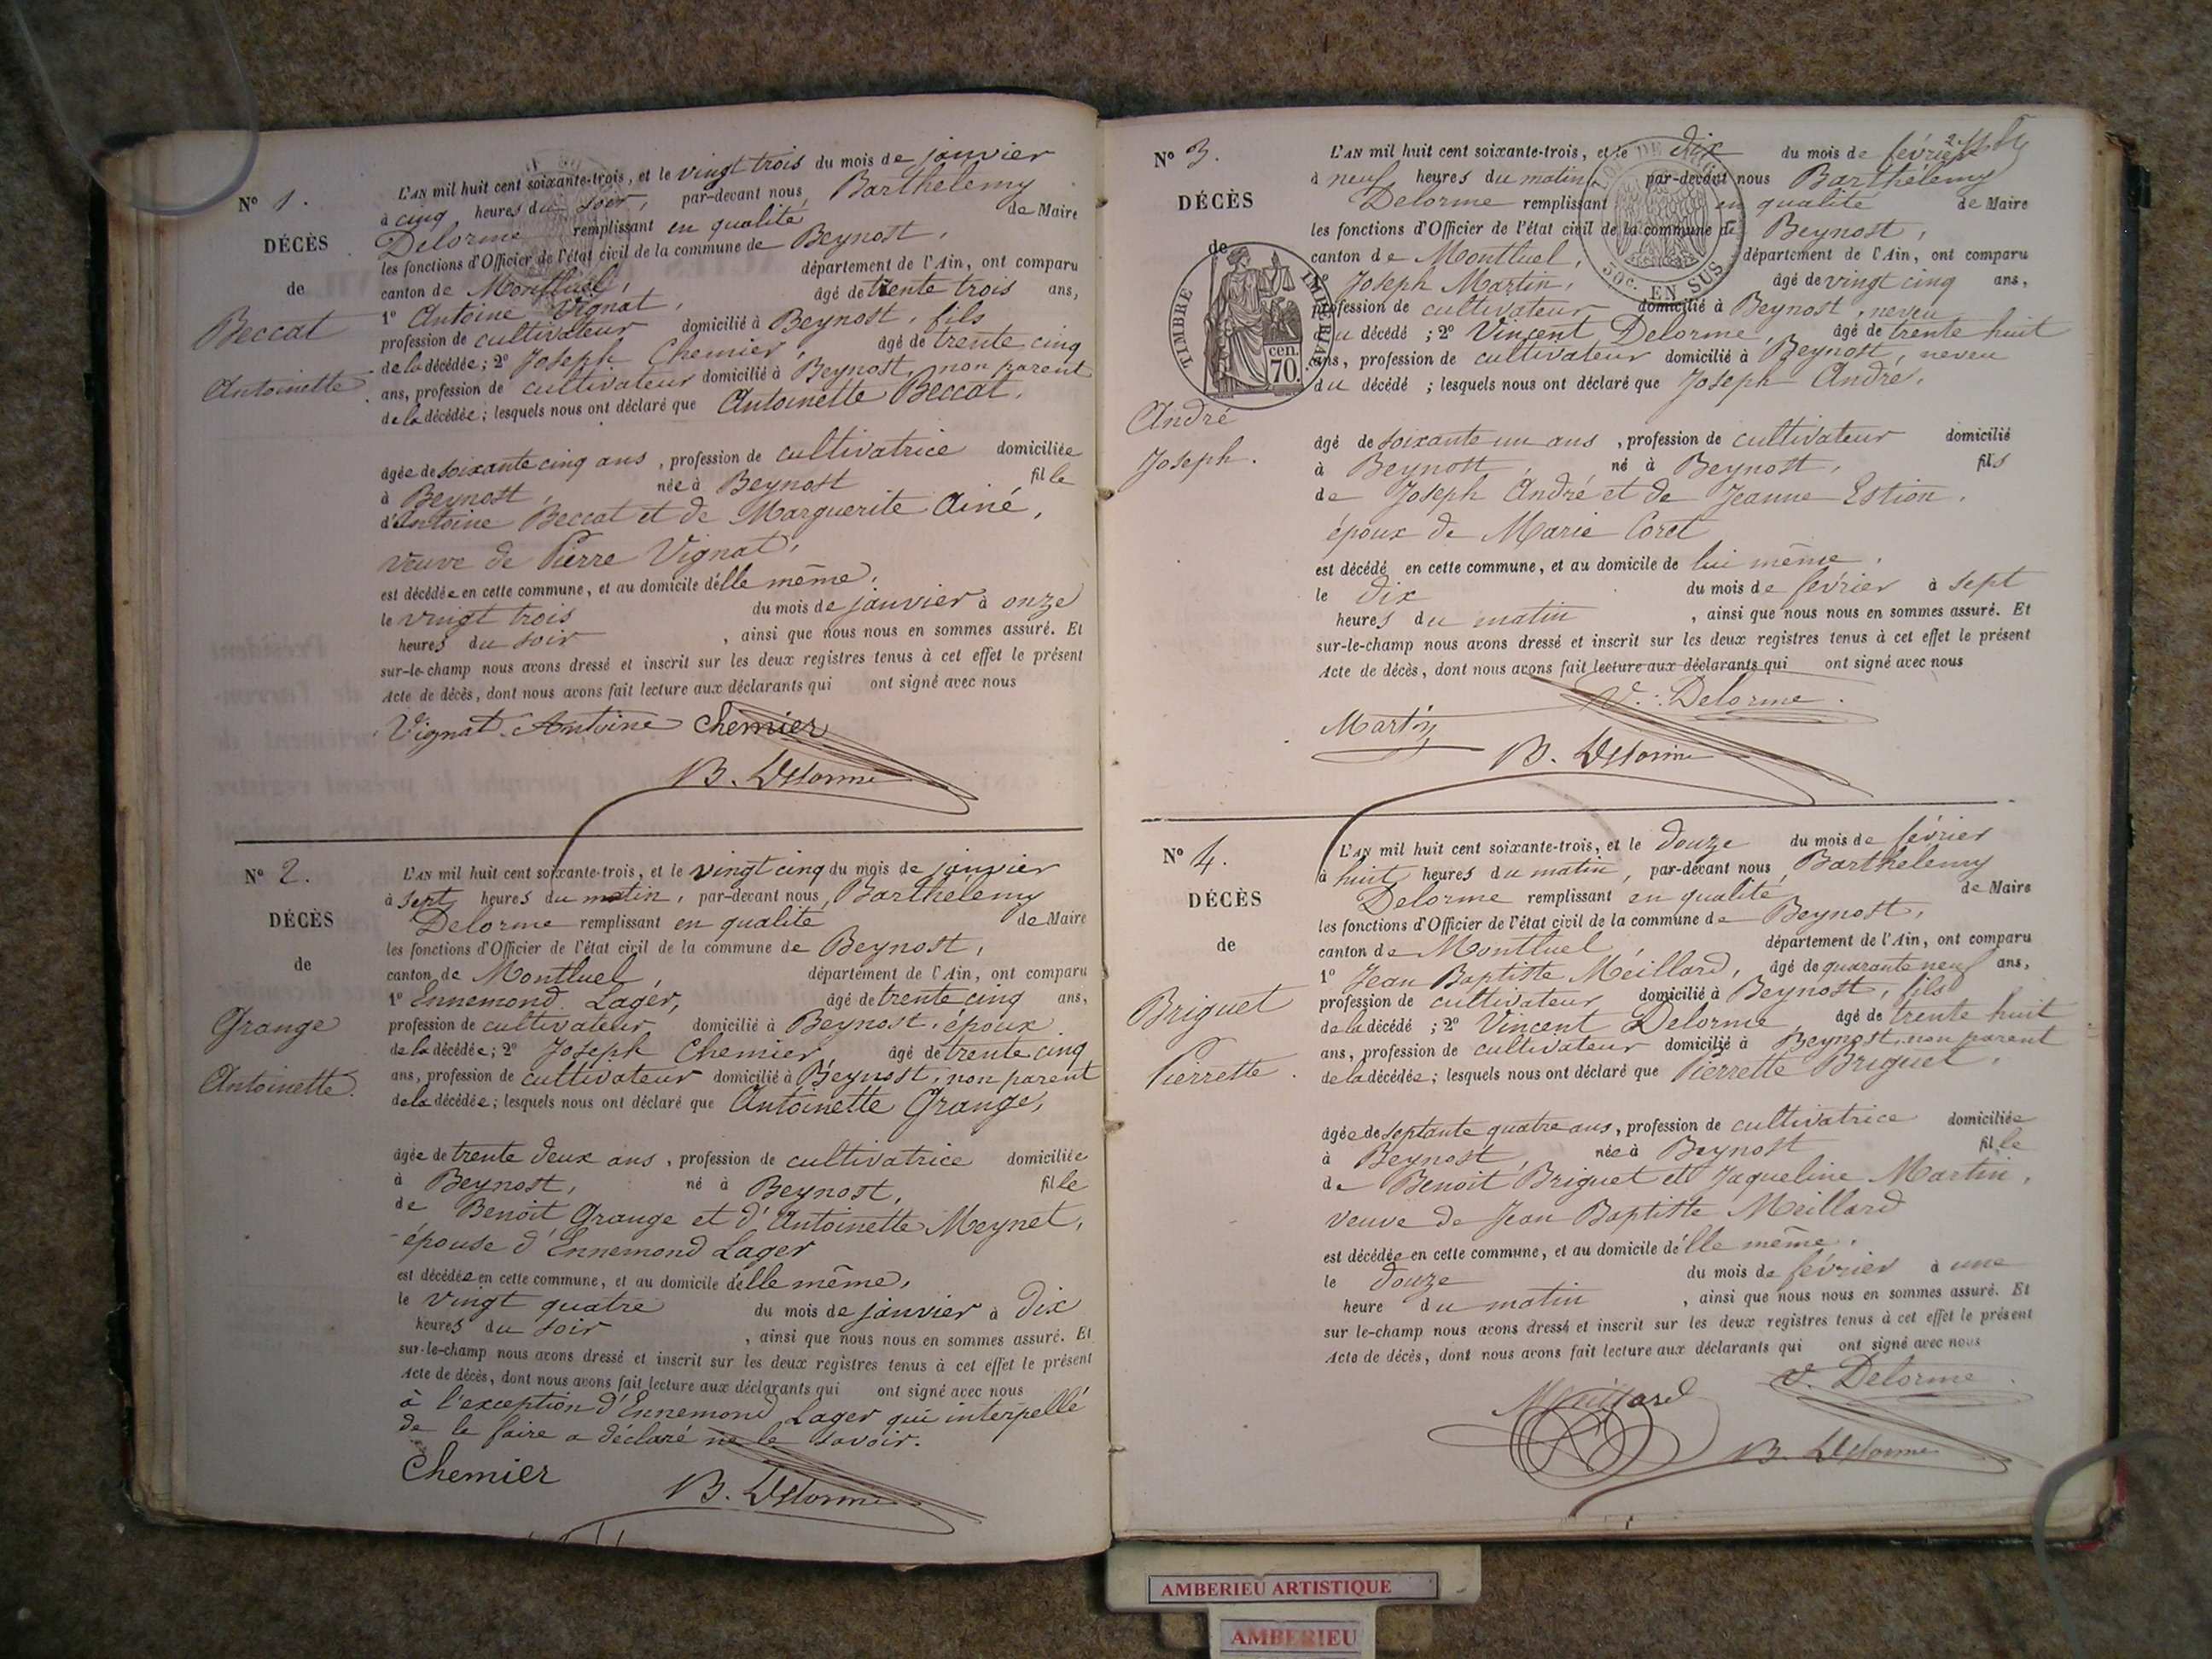 N° 1.
DÉCÈS
de
Beccat
Antoinette
L'AN mil huit cent soixante-trois, et le vingt trois du mois de janvier
à cinq heures du soir, par-devant nous Barthelemy
Delorme remplissant en qualité de Maire
les fonctions d'Officier de l'état civil de la commune de Beynost,
canton de Montluel, département de l'Ain, ont comparu
1° Antoine Vignat, âgé de trente trois ans,
profession de cultivateur domicilié à Beynost, fils
de la décédée; 2° Joseph Chemier, âgé de trente cinq
ans, profession de cultivateur domicilié à Beynost, non parent
de la décédée; lesquels nous ont déclaré que Antoinette Beccat,
âgée de soixante cinq ans, profession de cultivatrice domiciliée
à Beynost, née à Beynost fille
d'Antoine Beccat et de Marguerite Ainé,
veuve de Pierre Vignat,
est décédée en cette commune, et au domicile d'elle même,
le vingt trois du mois de janvier à onze
heures du soir, ainsi que nous nous en sommes assuré. Et
sur-le-champ nous avons dressé et inscrit sur les deux registres tenus à cet effet le présent
Acte de décès, dont nous avons fait lecture aux déclarants qui ont signé avec nous
Vignat Antoine Chemier
B. Delorme
N° 2.
DÉCÈS
de
Grange
Antoinette.
L'AN mil huit cent soixante-trois, et le vingt cinq du mois de janvier
à sept heures du matin, par-devant nous Barthelemy
Delorme remplissant en qualité de Maire
les fonctions d'Officier de l'état civil de la commune de Beynost,
canton de Montluel, département de l'Ain, ont comparu
1° Ennemond Lager, âgé de trente cinq ans,
profession de cultivateur domicilié à Beynost, époux
de la décédée; 2° Joseph Chemier, âgé de trente cinq
ans, profession de cultivateur domicilié à Beynost, non parent
de la décédée; lesquels nous ont déclaré que Antoinette Grange,
âgée de trente deux ans, profession de cultivatrice domiciliée
à Beynost, né à Beynost, fille
de Benoit Grange et d'Antoinette Meynet,
épouse d'Ennemond Lager
est décédée en cette commune, et au domicile d'elle même,
le vingt quatre du mois de janvier à dix
heures du soir, ainsi que nous nous en sommes assuré. Et
sur-le-champ nous avons dressé et inscrit sur les deux registres tenus à cet effet le présent
Acte de décès, dont nous avons fait lecture aux déclarants qui ont signé avec nous
à l'exception d'Ennemond Lager qui interpellé
de le faire a déclaré ne le savoir.
Chemier
B. Delorme
N° 3.
DÉCÈS
de
TIMBRE IMPERIAL
cen.
70.
30c. EN SUS
André
Joseph.
L'AN mil huit cent soixante-trois, et le dix du mois de février
à neuf heures du matin, par-devant nous Barthelemy
Delorme remplissant en qualité de Maire
les fonctions d'Officier de l'état civil de la commune de Beynost,
canton de Montluel, département de l'Ain, ont comparu
1° Joseph Martin, âgé de vingt cinq ans,
profession de cultivateur domicilié à Beynost, neveu
du décédé; 2° Vincent Delorme, âgé de trente huit
ans, profession de cultivateur domicilié à Beynost, neveu
du décédé; lesquels nous ont déclaré que Joseph André,
âgé de soixante un ans, profession de cultivateur domicilié
à Beynost, né à Beynost, fils
de Joseph André et de Jeanne Estion,
époux de Marie Coret
est décédé en cette commune, et au domicile de lui même,
le dix du mois de février à sept
heures du matin, ainsi que nous nous en sommes assuré. Et
sur-le-champ nous avons dressé et inscrit sur les deux registres tenus à cet effet le présent
Acte de décès, dont nous avons fait lecture aux déclarants qui ont signé avec nous
V. Delorme
Martin
B. Delorme
N° 4.
DÉCÈS
de
Briguet
Pierrette.
L'AN mil huit cent soixante-trois, et le douze du mois de février
à huit heures du matin, par-devant nous Barthelemy
Delorme remplissant en qualité de Maire
les fonctions d'Officier de l'état civil de la commune de Beynost,
canton de Montluel, département de l'Ain, ont comparu
1° Jean Baptiste Meillard, âgé de quarante neuf ans,
profession de cultivateur domicilié à Beynost, fils
de la décédé; 2° Vincent Delorme âgé de trente huit
ans, profession de cultivateur domicilié à Beynost, non parent
de la décédée; lesquels nous ont déclaré que Pierrette Briguet,
âgée de septante quatre ans, profession de cultivatrice domiciliée
à Beynost, née à Beynost fille
de Benoit Briguet et Jaqueline Martin,
veuve de Jean Baptiste Meillard
est décédée en cette commune, et au domicile d'elle même,
le douze du mois de février à une
heure du matin, ainsi que nous nous en sommes assuré. Et
sur le-champ nous avons dressé et inscrit sur les deux registres tenus à cet effet le présent
Acte de décès, dont nous avons fait lecture aux déclarants qui ont signé avec nous
V. Delorme
Meillard
B. Delorme
AMBERIEU ARTISTIQUE
AMBERIEU